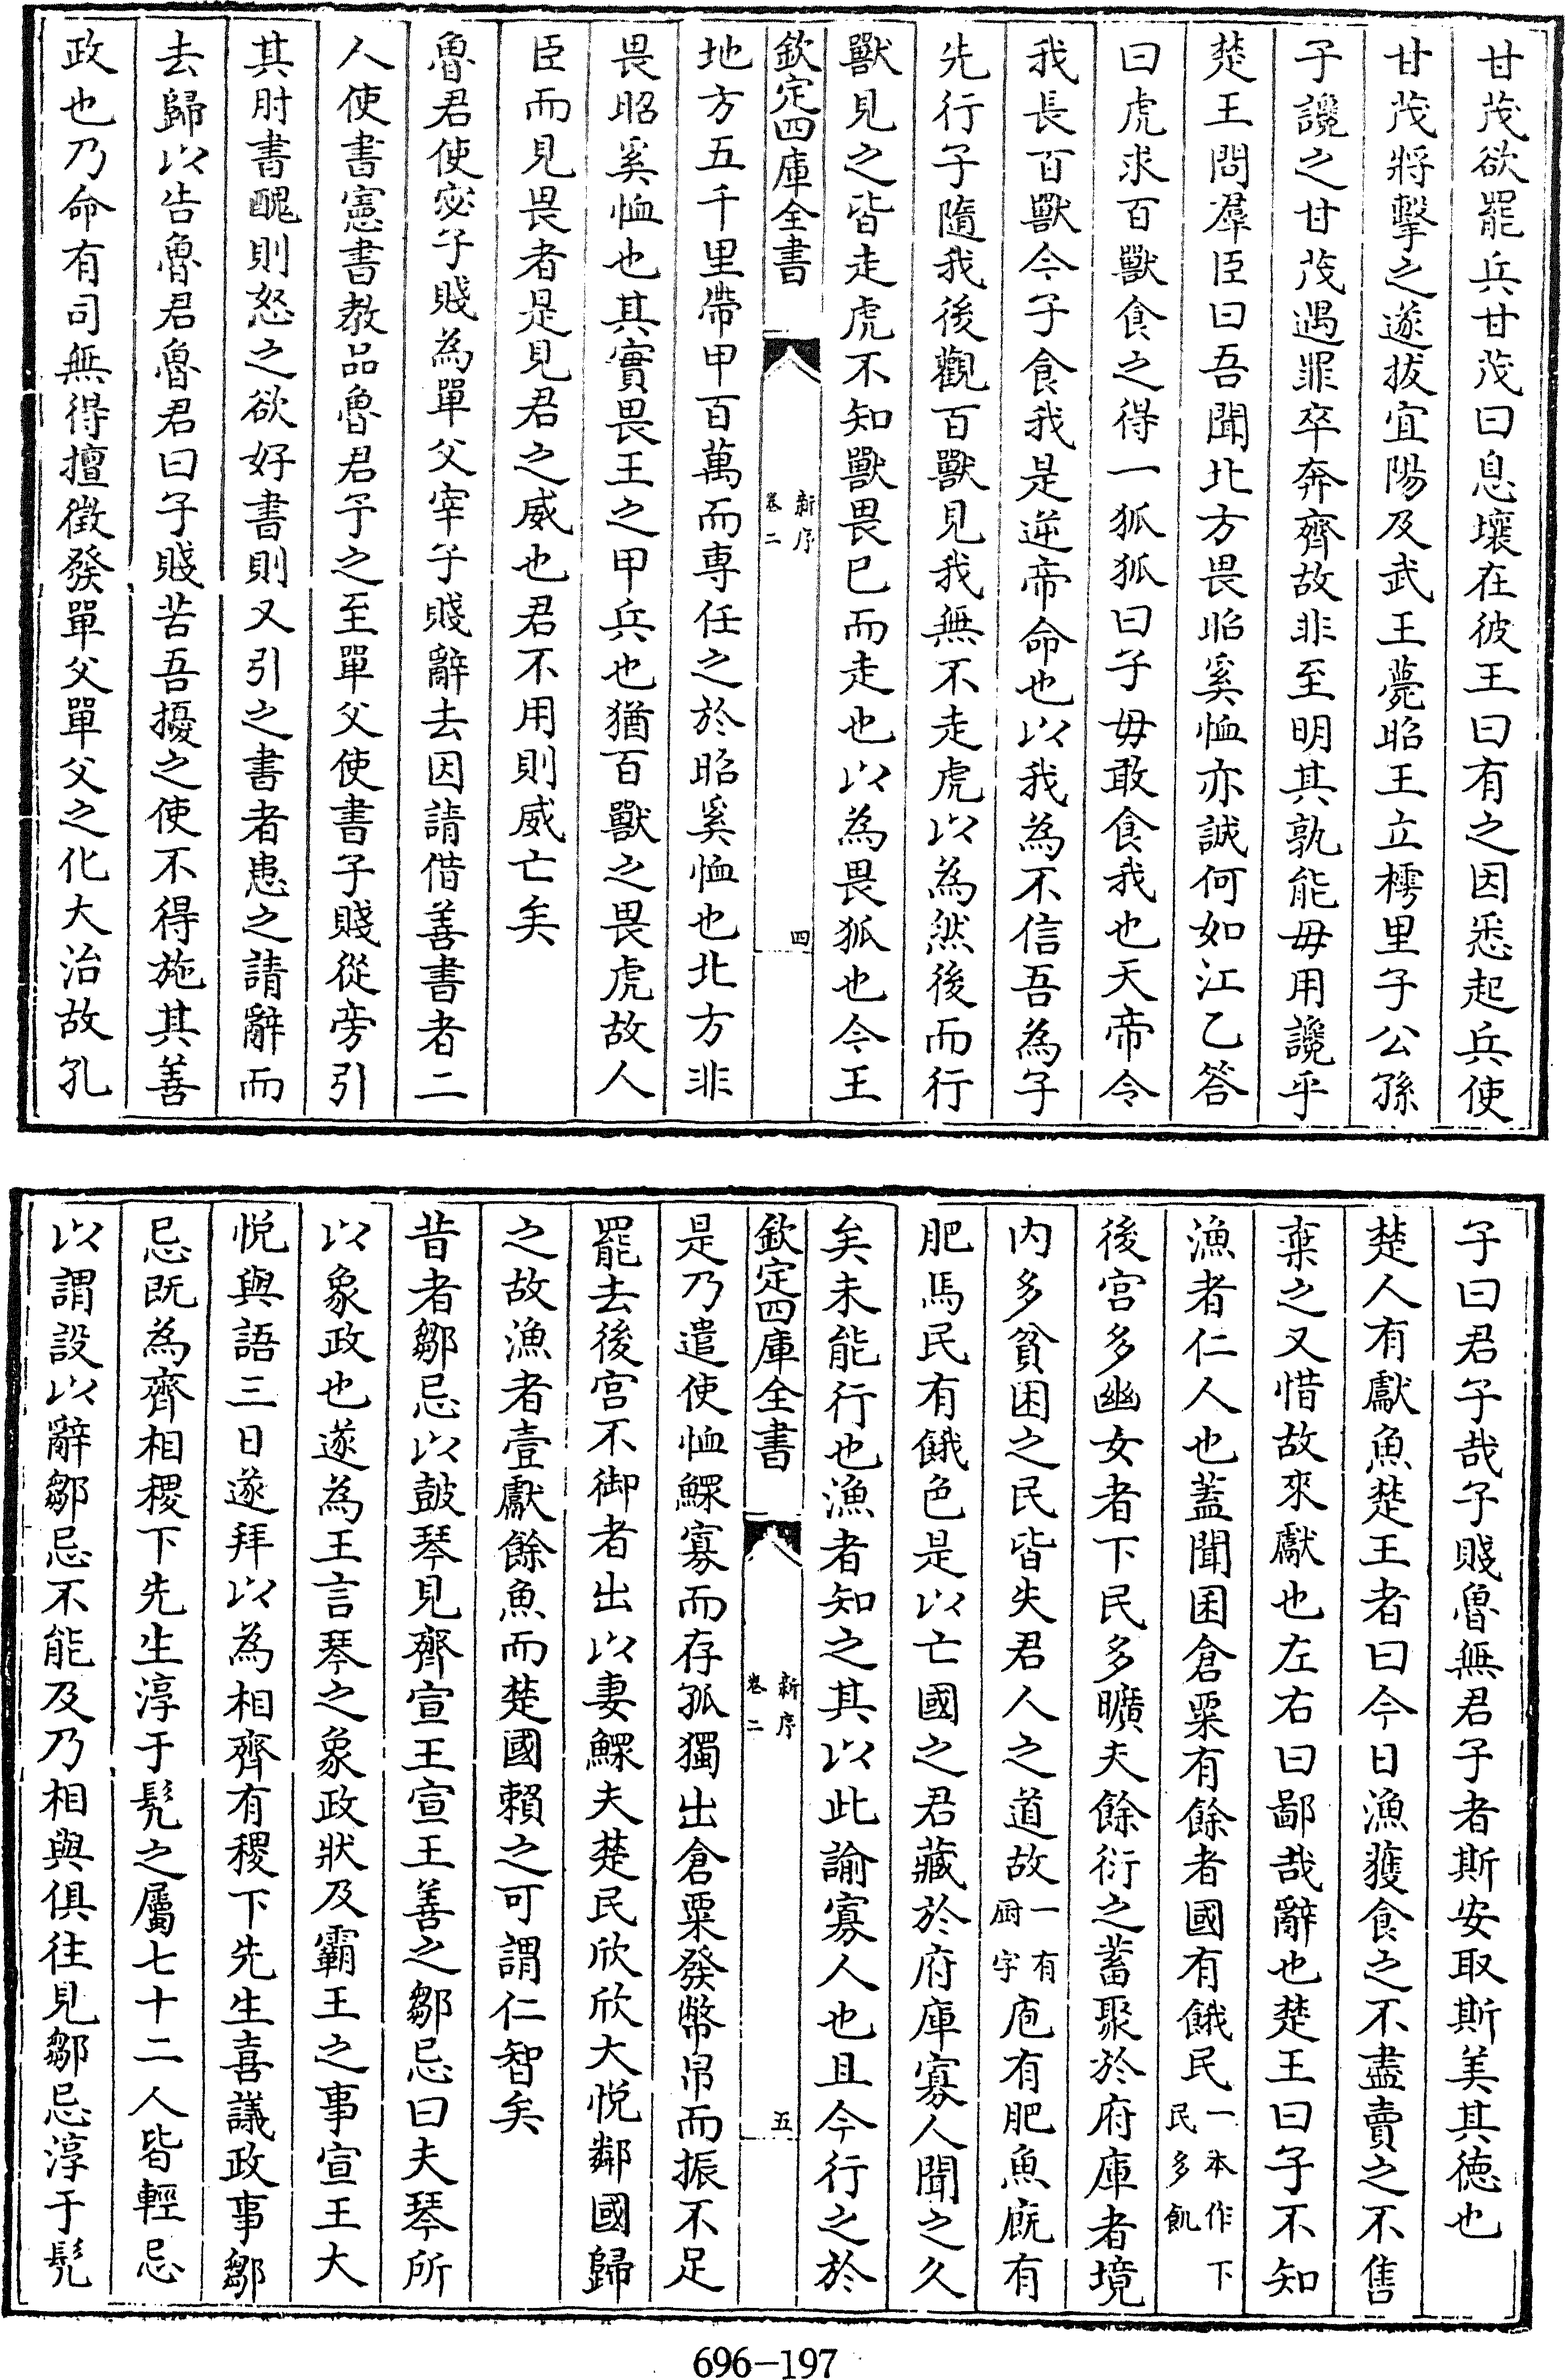 甘茂欲罷兵甘茂曰息壤在彼王曰有之因悉起兵使
甘茂將擊之遂拔宜陽及武王薨昭王立樗里子公孫
子讒之甘茂遇罪卒奔齊故非至明其孰能毋用讒乎
楚王問羣臣曰吾聞北方畏昭奚恤亦誠何如江乙答
曰虎求百獸食之得一狐狐曰子毋敢食我也天帝令
我長百獸今子食我是逆帝命也以我為不信吾為子
先行子隨我後觀百獸見我無不走虎以為然後而行
獸見之皆走虎不知獸畏已而走也以為畏狐也今王
欽定四庫全書
新序
卷二
四
地方五千里帶甲百萬而專任之於昭奚恤也北方非
畏昭奚恤也其實畏王之甲兵也猶百獸之畏虎故人
臣而見畏者是見君之威也君不用則威亡矣
魯君使宓子賤為單父宰子賤辭去因請借善書者二
人使書憲書教品魯君予之至單父使書子賤從旁引
其肘書醜則怒之欲好書則又引之書者患之請辭而
去歸以告魯君魯君曰子賤苦吾擾之使不得施其善
政也乃命有司無得擅徵發單父單父之化大治故孔
子曰君子哉子賤魯無君子者斯安取斯美其德也
楚人有獻魚楚王者曰今日漁獲食之不盡賣之不售
棄之又惜故來獻也左右曰鄙哉辭也楚王曰子不知
漁者仁人也蓋聞囷倉粟有餘者國有餓民一本作下民多飢
後宮多幽女者下民多曠夫餘衍之蓄聚於府庫者境
内多貧困之民皆失君人之道故一有廚字庖有肥魚廐有
肥馬民有餓色是以亡國之君藏於府庫寡人聞之久
矣未能行也漁者知之其以此諭寡人也且今行之於
欽定四庫全書
新序
卷二
五
是乃遣使恤鰥寡而存孤獨出倉粟發幣帛而振不足
罷去後宮不御者出以妻鰥夫楚民欣欣大悅鄰國歸
之故漁者壹獻餘魚而楚國賴之可謂仁智矣
昔者鄒忌以鼓琴見齊宣王宣王善之鄒忌曰夫琴所
以象政也遂為王言琴之象政狀及霸王之事宣王大
悅與語三日遂拜以為相齊有稷下先生喜議政事鄒
忌既為齊相稷下先生淳于髠之屬七十二人皆輕忌
以謂設以辭鄒忌不能及乃相與俱往見鄒忌淳于髠
696-197